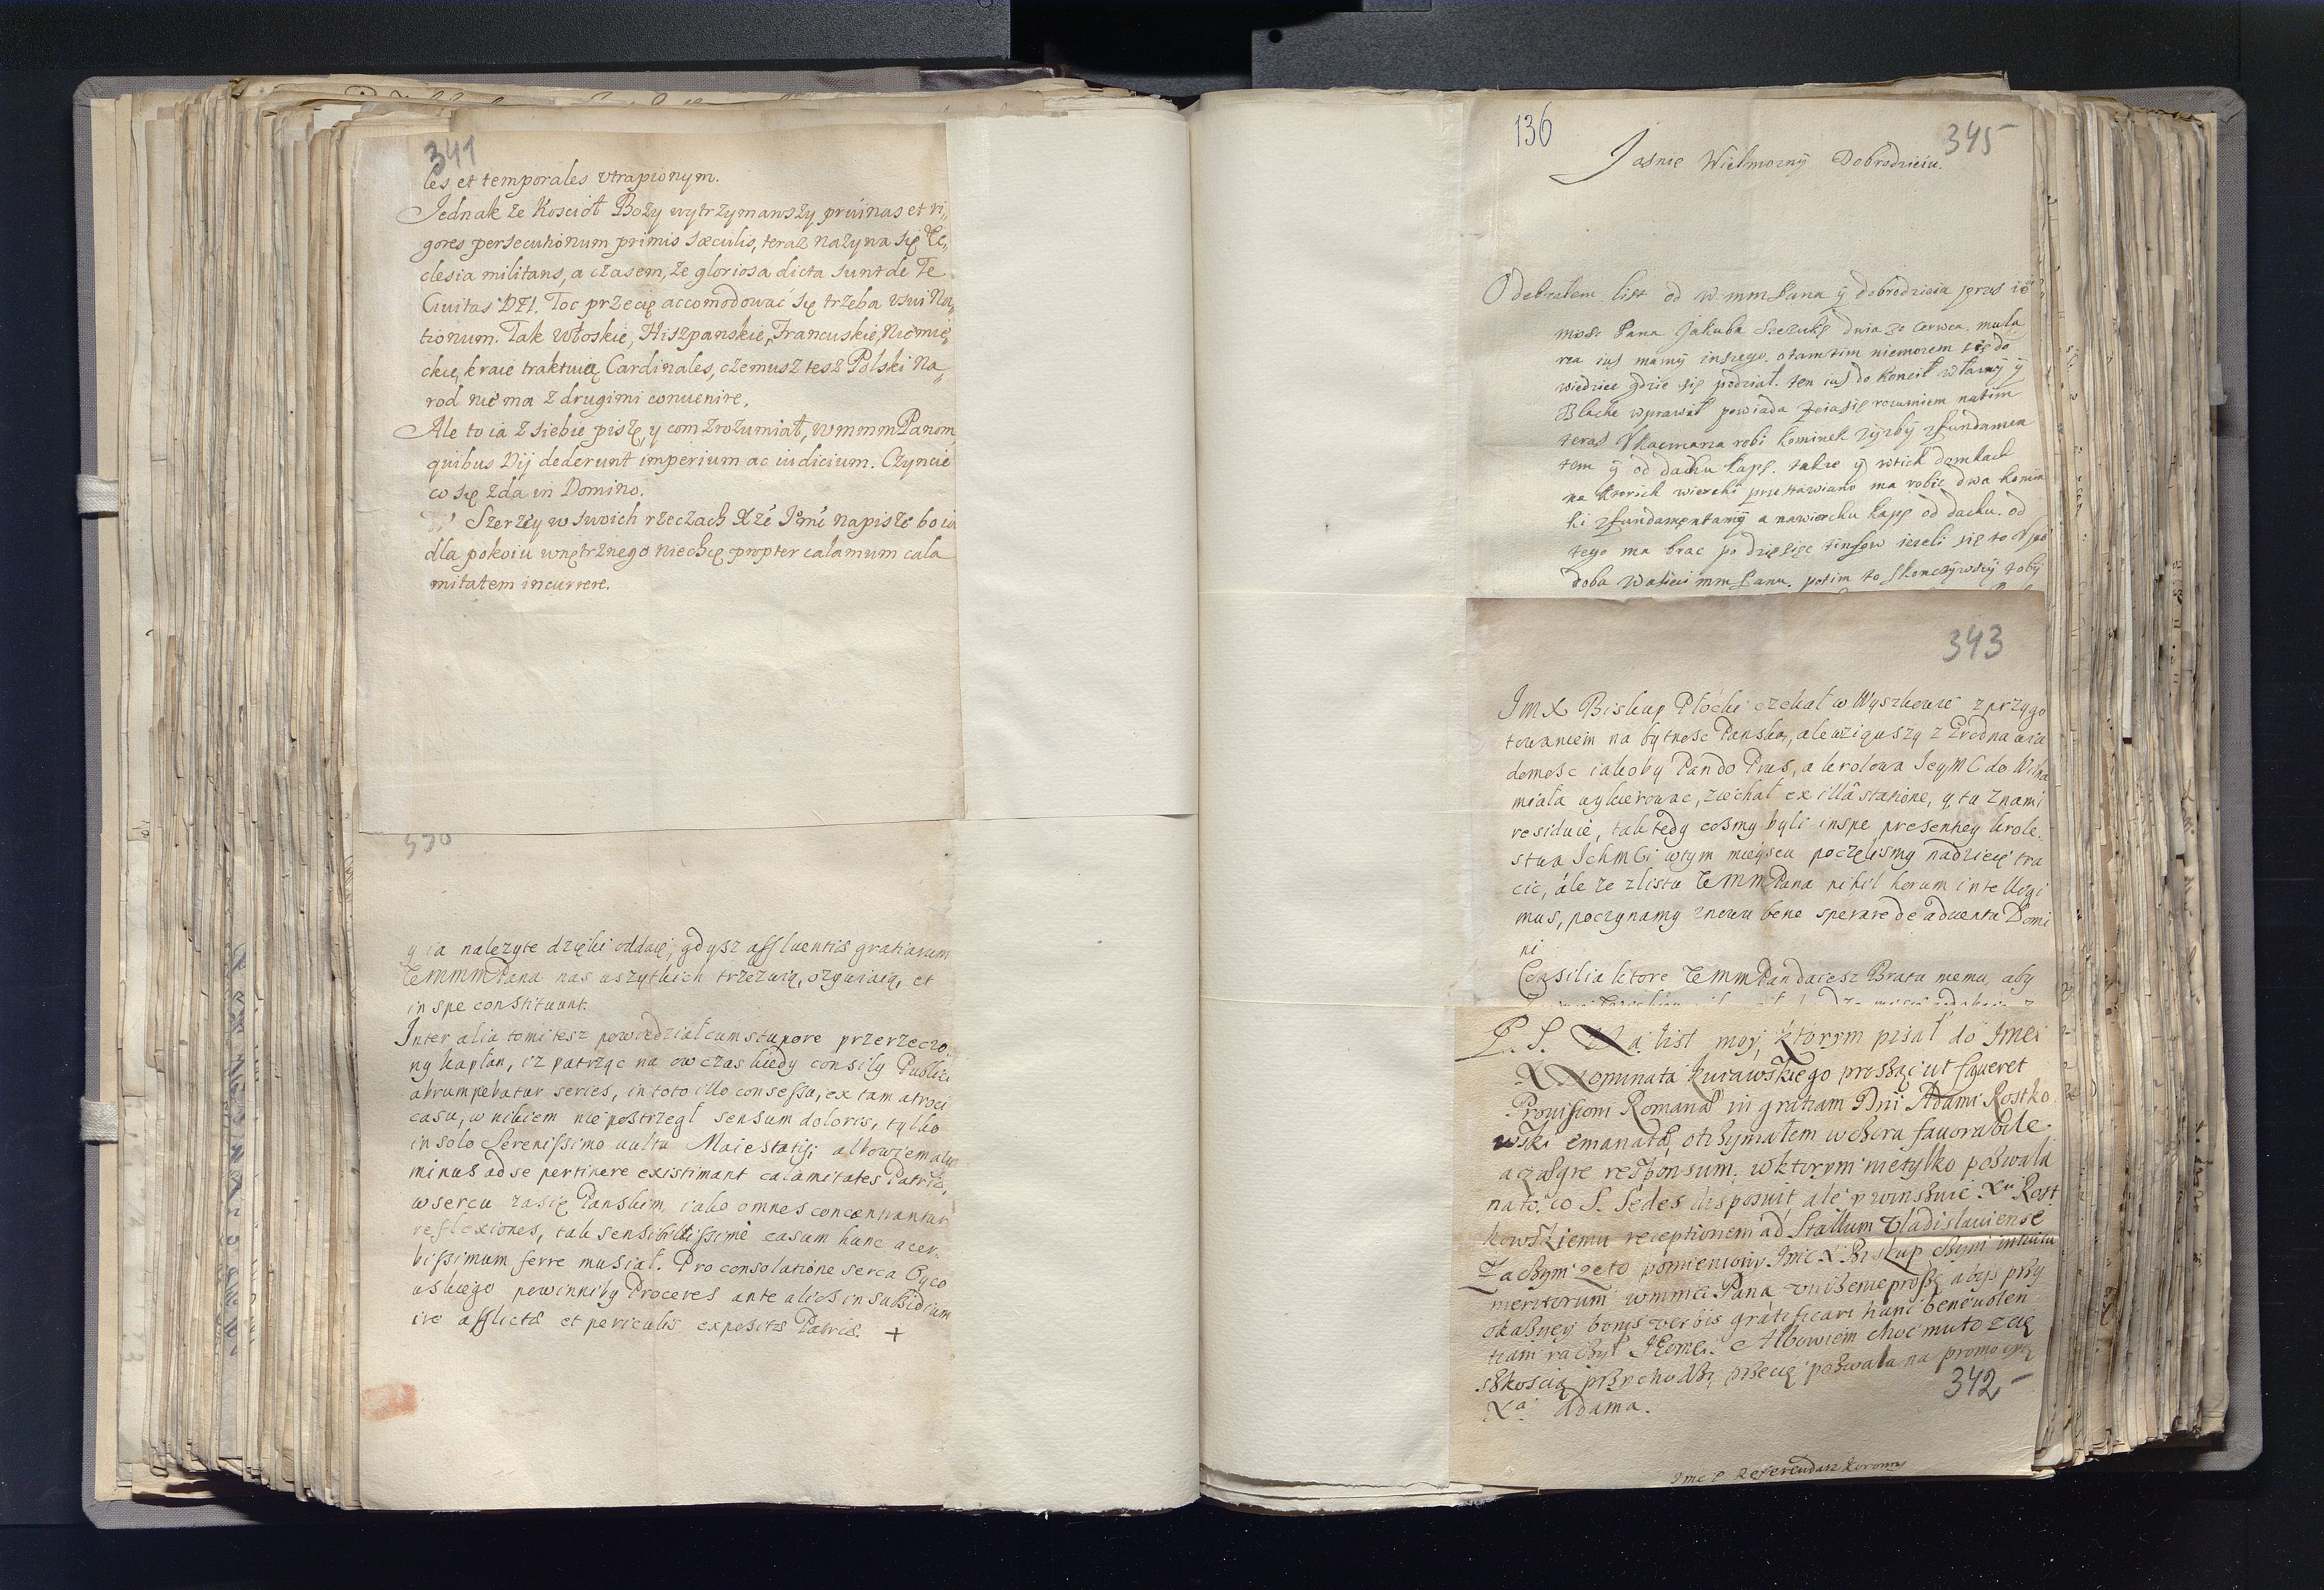 341
les et temporales utrapionym.
Jednak ze Kosciół Boży wytrzymawszy pruinas et ri„
gores persecutionum primis sæculis, teraz nazyna się Ec„
clesia militans, a czasem, ze gloriosa dicta sunt de Te
Ciuitas DEI. Toc przecię accomodować się trzeba vsui Na„
tionum. Tak Włoskie, Hiszpanskie, Francuskie, Niemie„
ckie, kraie traktuią Cardinales, czemusz tesz Polski Na„
rod nie ma z drugimi conuenire,
Ale to ia z siebie piszę, y com zrozumiał, wmmmPanom,
quibus Dij dederunt imperium ac iudicium. Czyncie
co się zda in Domino.
Szerzey w swoich rzeczach Xżę Jmć napisze bo ia
dla pokoiu wnętrznego niechcę propter calamum cala
mitatem incurrere.
y ia nalezyte dzięki oddaię, gdysz affluentiis gratiarum
WMMMPana nas wszytkich trzezwią, ozywiaią, et
in spe constituunt.
Inter alia tomi tesz powiedział cum stupore przerzeczo
ny kapłan, iz patrząc na ow czas kiedy consily Publici
abrumpebatur series, in toto illo consessu, ex tam atroci
casu, w nikiem nie postrzegł sensum doloris, tylko
in solo Serenissimo uultu Maiestatis; albowiem aly
minus ad se pertinere existimant calamitates Patriæ,
w sercu zasię Panskim, iako omnes concentrantur
reflexiones, tak sensibilissimè casum hunc acer„
bissimum ferre musiał. Pro consolatione serca Oyco
wskiego powinniby Proceres ante alios in subsidium
ire afflictæ et periculis expositæ Patriæ. +
136
345
Jasnie Wielmozny Dobrodzieiu.
Odebrałem list od w mm Pana y dobrodzieia przes ie
mosc Pana Jakuba Szczukę dnia 20 Czerwca. mula
rza ius mamy inszego. o tamtim niemozem się do
wiedziec gdzie się podział. ten ius do konca
Blache wprawił powiada rozumiem natim
teras V kacmarza robi kominek zizby z fundamen
tem y od dachu kapę. takze y wtich domkach
na ktorich wierzchi prestawiano ma robic dwa komin
ki z fundamentamy a nawierzchu kapę od dachu. od
tego ma brac po dziesięc tinfow iezeli się to Vpo
doba Wasieci mm Panu. potim to skonczywszy zoby
343
JmX Biskup Płocki czekał w Wyszkowie z przygo
towaniem na bytnosc Panską, ale wziąwszy z Grodna wia
domosc iakoby Pan do Prus, a krolowa JeyMC do Wilna
miała wykierowac, ziechał ex illâ statione, y tu z nami
residuie, tak tedy cosmy byli in spe presentiey krole„
stwa Ichmci w tym mieyscu poczęlismy nadzieię tra
cic, ále ze z listu WMMPana nihil horum intelligi
mus, poczynamy znowu bene sperare de aduentu Domi
ni
Consilia ktore WMMPan daiesz Bratu memu, aby
P. S. Na list moy, ktorym pisał do Jmci
X Nominata Kuiawskiego prosząc ut faueret
Prouisioni Romanæ in gratiam Dni Adami Rostko
wski emanatæ, otrzymałem wczora fauorabile
responsum, wktorym nietylko pozwala
nato, co S. Sedes disposuit, ale y winszuie Xu Rost
kowskiemu receptionem ad Stallum Vladislauiense
Zaczym zeto pomieniony Jmc X Biskup czyni intuitu
meritorum wmmci Pana vnizenie proszę abys przy
okazyey bonis verbis gratificari hanc beneuolen
tiam raczył Albowiem choc muto z cię
szkoscią przychodzi, przecię pozwala na promocyą
Xa Adama.
342
Jmc P Referendarz Koronny